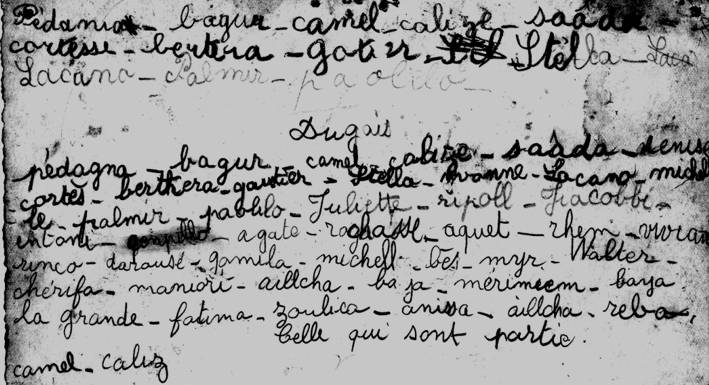 Pédania - bagur - camel - calize - saada -
cortesse - bertera - gotier - Stella - Laca
Lacano - Palmir - paolilo -
Dugais
pédagna - bagur - camel - calize - saada - denise
cortès - berthera - gautier - Stella - yvonne - Lacano michel
le - palmir - paolilo - Juliette - ripoll - Jiacobbi -
entoni - agate - raghasse - aquet - rhem - vivian
rinco - darausé - gamila - michell - bes - myr - Walter -
chérifa - maniori - aillcha - baja - mérimeem - baya
la grande - fatima - zoulica - anissa - aillcha - reba,
belle qui sont partie.
camel - caliz